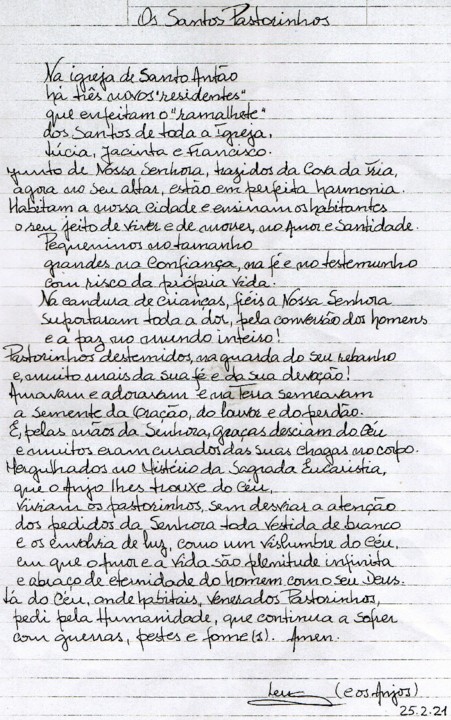 Os Santos Pastorinhos
Na igreja de Santo Antão
há três novos "residentes"
que enfeitam o "ramalhete"
dos Santos de toda a Igreja,
Lúcia, Jacinta e Francisco.
Junto de Nossa Senhora, trazidos da Cova da Iria,
agora no seu altar, estão em perfeita harmonia.
Habitam a nossa cidade e ensinam os habitantes
o seu jeito de viver e de morrer, no Amor e Santidade.
Pequeninos no tamanho
grandes na Confiança, na fé e no testemunho
com risco da própria vida.
Na candura de crianças, fiéis a Nossa Senhora
suportaram toda a dor, pela conversão dos homens
e a paz no mundo inteiro!
Pastorinhos destemidos, na guarda do seu rebanho
e, muito mais da sua fé e da sua devoção!
Amavam e adoravam e na Terra semeavam
a semente da Oração, do louvor e do perdão.
E, pelas mãos da Senhora, Graças desciam do Céu
e muitos eram curados das suas chagas no corpo.
Mergulhados no Mistério da Sagrada Eucaristia,
que o Anjo lhes trouxe do Céu,
viviam os pastorinhos, sem desviar a atenção
dos pedidos da Senhora toda vestida de branco
e os envolvia de luz, como um vislumbre do Céu,
em que o Amor e a Vida são plenitude infinita
e abraço de eternidade do homem com o seu Deus.
Lá do Céu, onde habitais, Venerados Pastorinhos,
pedi pela Humanidade, que continua a sofrer
com guerras, pestes e fome(s). Amen.
(e os Anjos)
25.2.21